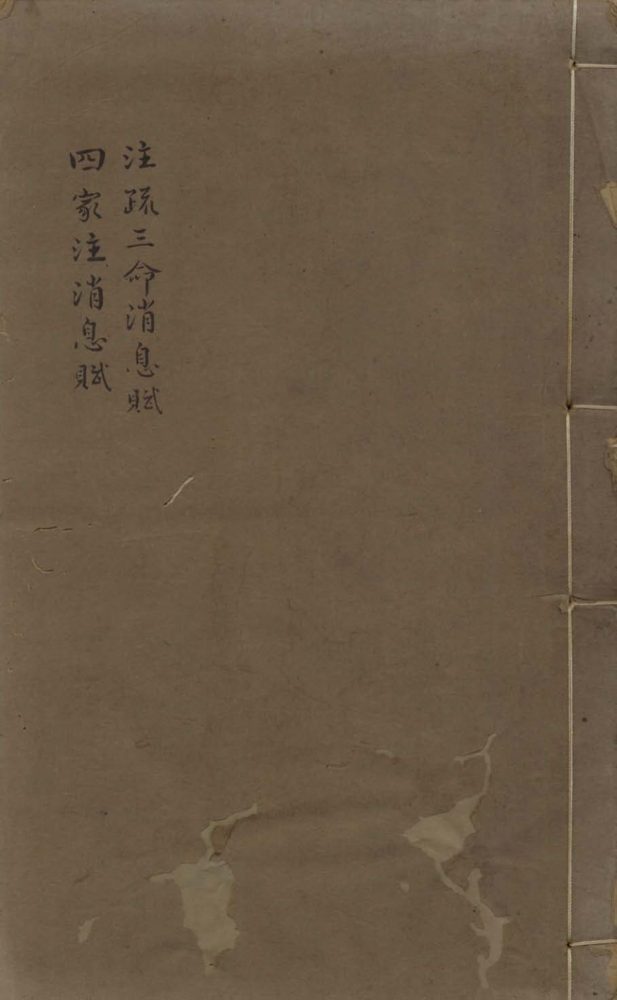 注疏三命消息賦
四家注消息賦